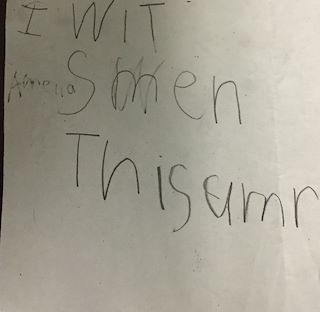 I WIT
Amelia Smen
Thisumr